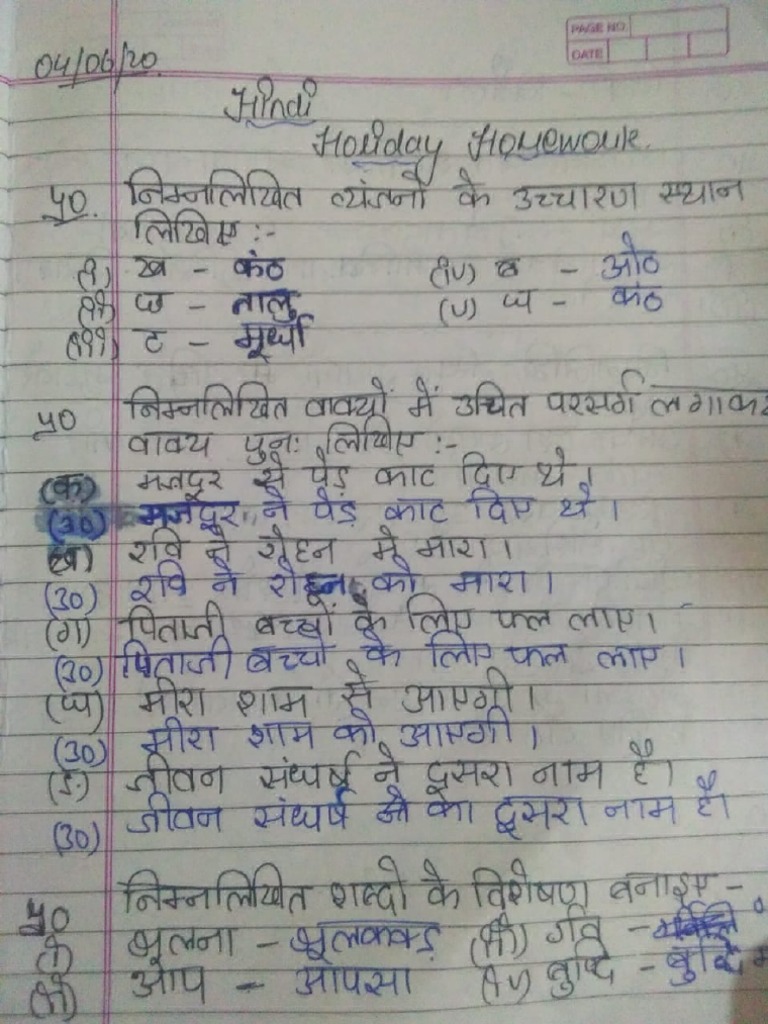 PAGE NO.
DATE
04/06/20
Hindi
Holiday Homework.
प्र०. निम्नलिखित व्यंजनों के उच्चारण स्थान
लिखिए :-
(i) ख - कंठ (iv) ब - ओठ
(ii) छ - तालु (v) घ - कंठ
(iii) ट - मूर्धा
प्र० निम्नलिखित वाक्यों में उचित परसर्ग लगाकर
वाक्य पुनः लिखिए :-
(क) मजदूर से पेड़ काट दिए थे।
(उ०) मजदूर ने पेड़ काट दिए थे।
(ख) रवि ने रोहन मे मारा।
(उ०) रवि ने रोहन को मारा।
(ग) पिताजी बच्चों के लिए फल लाए।
(उ०) पिताजी बच्चों के लिए फल लाए।
(घ) मीरा शाम से आएगी।
(उ०) मीरा शाम को आएगी।
(ङ) जीवन संघर्ष ने दूसरा नाम है।
(उ०) जीवन संघर्ष का दूसरा नाम है।
प्र० निम्नलिखित शब्दो के विशेषण बनाइए -
(i) भूलना - भूलक्कड़ (iii) गर्व -
(ii) आप - आपसा (iv) बुद्धि -